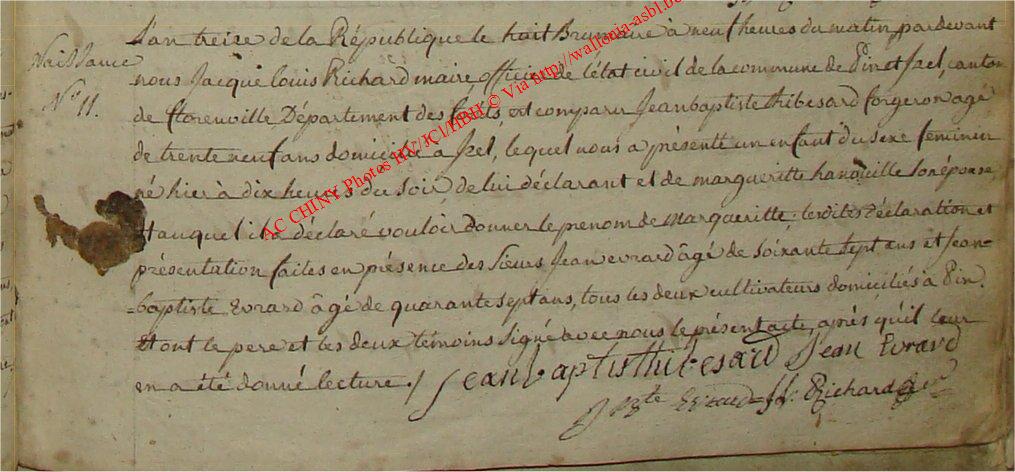 Naissance
N° 11.
L'an treize de la République le huit Brumaire à neuf heures du matin, pardevant
nous Jacque Louis Richard maire, officier de l'état civil de la commune de Pin et Izel, canton
de florenville Département des forêts, est comparu Jean baptiste thibesard forgeron agé
de trente neuf ans domicilié a Izel, lequel nous a présenté un enfant du sexe feminin
né hier à dix heures du soir, de lui déclarant et de margueritte hanquille son épouse
et auquel il a déclaré vouloir donner le prenom de Margueritte; lesdites déclaration et
présentation faites en présence des sieurs Jean evrard âgé de soixante sept ans et Jean-
-baptiste Evrard âgé de quarante sept ans, tous les deux cultivateurs domiciliés à Pin.
Et ont le pere et les deux témoins signé avec nous le présent acte, après qu'il leur
en a été donné lecture./
Jean baptist thibesard Jean Evrard
J Bte Evrard J L: Richard
AC CHINY Photos HV/JCl/HBH © Via http://wallonia-asbl.be